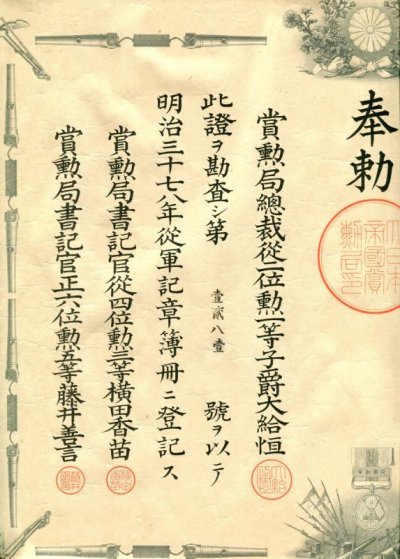 奉勅
賞勲局總裁從二位勲一等子爵大給恒
此證ヲ勘査シ第壹貳八壹號ヲ以テ
明治三十七八年從軍記章簿冊ニ登記ス
賞勲局書記官從四位勲三等横田香苗
賞勲局書記官正六位勲五等藤井善言